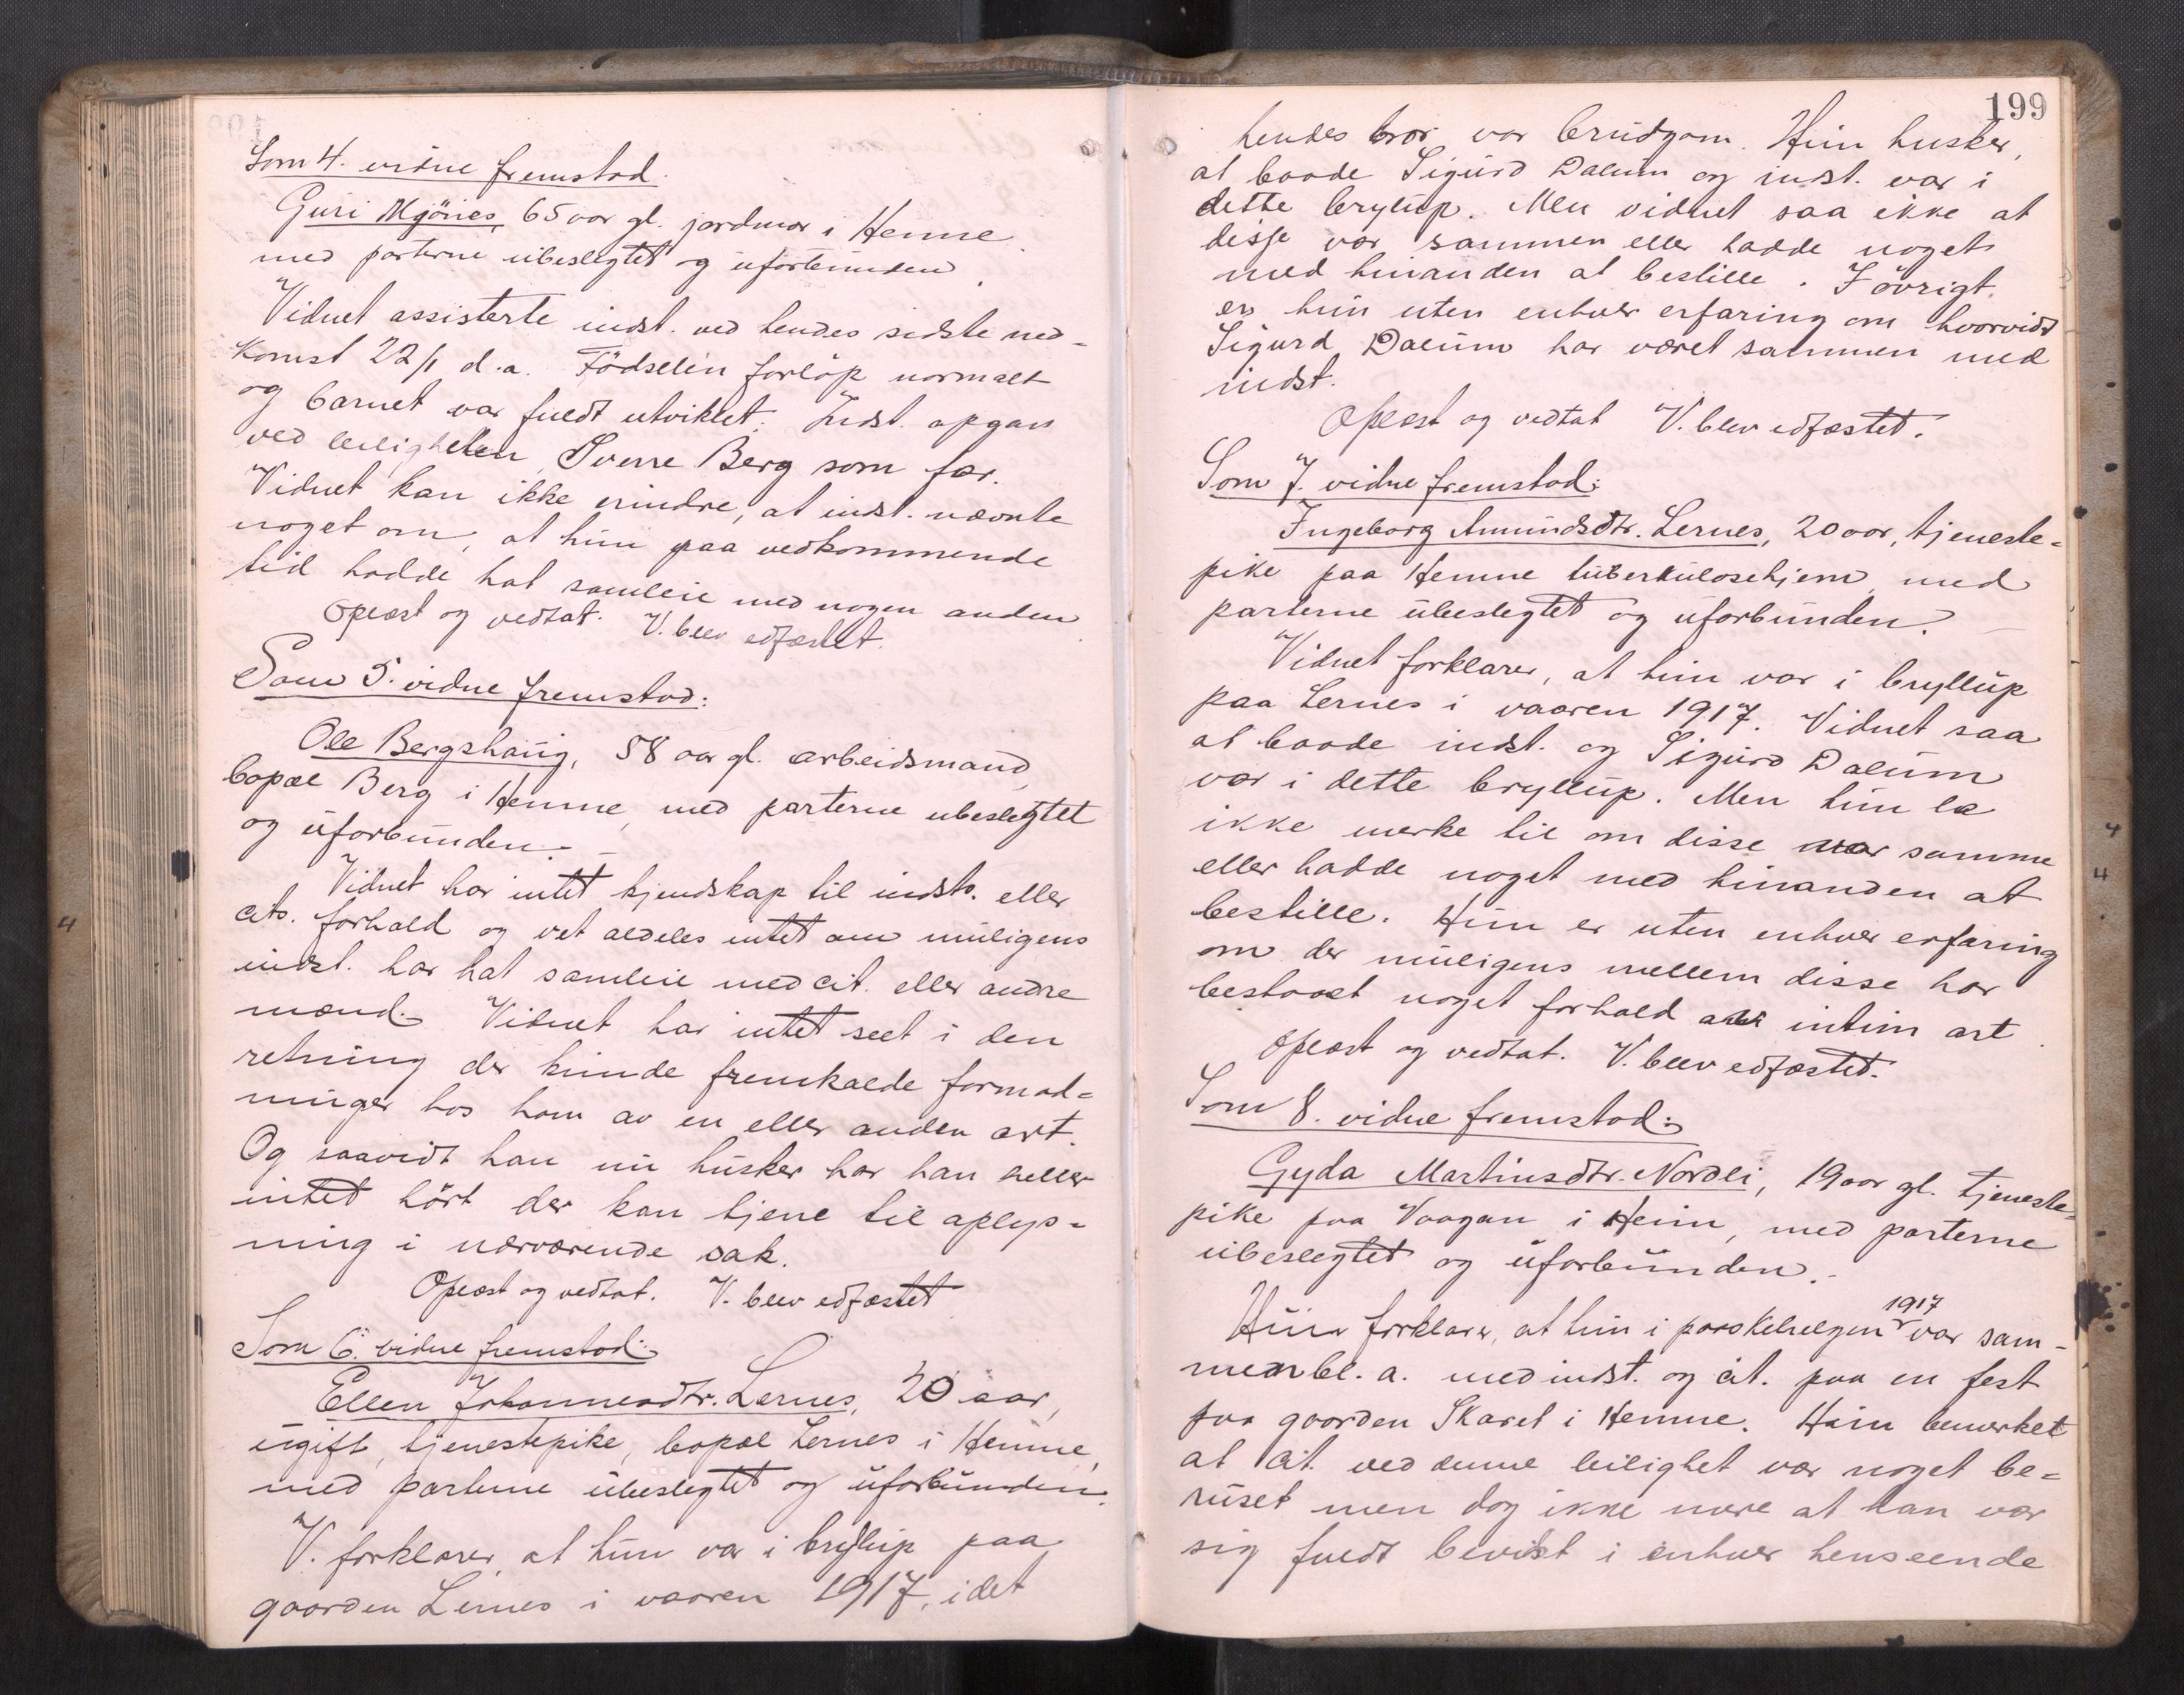 Som 4. vidne fremstod.
Guri Mjönes, 65 aar gl. jordmor i Hemne
med parterne ubeslegtet og uforbunden.
Vidnet assisterte indst. ved hendes sidste ned-
komst 22/1 d.a. Födselen forlöp normalt
og barnet var fuldt utviklet. Indst. opgav
ved leiligheten Sverre Berg som far.
Vidnet kan ikke erindre, at indst. nævnte
noget om, at hun paa vedkommende
tid hadde hat samleie med nogen anden
Oplæst og vedtat. V. blev edfæstet.
Som 5. vidne fremstod:
Ole Bergshaug, 58 aar gl. arbeidsmand,
bopæl Berg i Hemne, med parterne ubeslegtet
og uforbunden. -
Vidnet har intet kjendskap til indsts. eller
cits. forhold og vet aldeles intet om muligens
indst. har hat samleie med cit. eller andre
mænd. Vidnet har intet seet i den
retning der kunde fremkalde formod-
ninger hos ham av en eller anden art.
Og saavidt han nu husker har han heller
intet hört der kan tjene til oplys-
ning i nærværende sak.
Oplæst og vedtat. V. blev edfæstet
Som 6. vidne fremstod:
Ellen Johannesdtr. Lernes, 20 aar,
ugift, tjenestepike, bopæl Lernes i Hemne,
med parterne ubeslegtet og uforbunden.
V. forklarer, at hun var i bryllup paa
gaarden Lernes i vaaren 1917, idet
199
hendes bror var brudgom. Hun husker,
at baade Sigurd Dalum og indst. var i
dette bryllup. Men vidnet saa ikke at
disse var sammen eller hadde noget
med hinanden at bestille. I övrigt
er hun uten enhver erfaring om hvorvidt
Sigurd Dalum har været sammen med
indst.
Oplæst og vedtat V. blev edfæstet.
Som 7. vidne fremstod:
Ingeborg Amundsdtr. Lernes, 20 aar, tjeneste-
pike paa Hemne tuberkulosehjem, med
parterne ubeslegtet og uforbunden.
Vidnet forklarer, at hun var i bryllup
paa Lernes i vaaren 1917. Vidnet saa
at baade indst. og Sigurd Dalum
var i dette bryllup. Men hun la
ikke merke til om disse var samme
eller hadde noget med hinanden at
bestille. Hun er uten enhver erfaring
om der muligens mellem disse har
bestaaet noget forhold av intim art.
Oplæst og vedtat. V. blev edfæstet.
Som 8. vidne fremstod:
Gyda Martinsdtr. Nordli, 19 aar gl. tjeneste-
pike paa Vaagan i Heim, med parterne
ubeslegtet og uforbunden. -
1917
Hun forklarer, at hun i paaskehelgen var sam-
men bl. a. med indst. og cit. paa en fest
paa gaarden Skaret i Hemne. Hun bemerket
at cit. ved denne leilighet var noget be-
ruset men dog ikke mere at han var
sig fuldt bevisst i enhver henseende